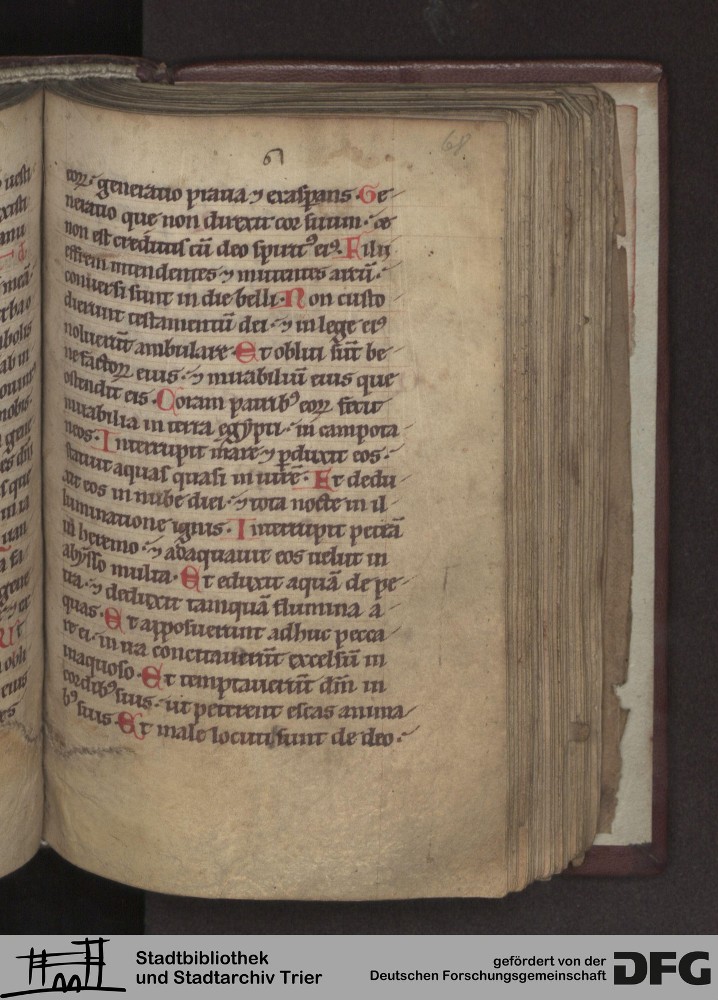 68
eoꝝ· generatio praua ⁊ exasꝑans· Ge
neratio que non direxit cor suum· ⁊
non est creditus cū deo spiritꝰ eiꝰ. Filii
effrem intendentes ⁊ mittentes arcū·
conuersi sunt in die belli· Non custo
dierunt testamentū dei· ⁊ in lege eiꝰ
noluerūt ambulare· Et obliti sūt be
nefactoꝝ eius· ⁊ mirabiliū eius que
ostendit eis· Coram patribꝰ eoꝝ fecit
mirabilia in terra egẏpti· in campo ta
neos· Interrupit mare ⁊ ꝑduxit eos·
statuit aquas quasi in utre· Et dedu
xit eos in nube diei· ⁊ tota nocte in il
luminatione ignis· Interrupit petrā
in heremo· ⁊ adaquauit eos uelut in
abẏsso multa· Et eduxit aquā de pe
tra· ⁊ deduxit tamquā flumina a
quas· Et apposuerunt adhuc pecca
re ei· in ira concitauerūt excelsū in
inaquoso· Et temptauerūt dm̄ in
cordibꝰ suis· ut peterent escas anima
bꝰ suis· Et male locuti sunt de deo·
Stadtbibliothek
und Stadtarchiv Trier
gefördert von der
Deutschen Forschungsgemeinschaft
DFG